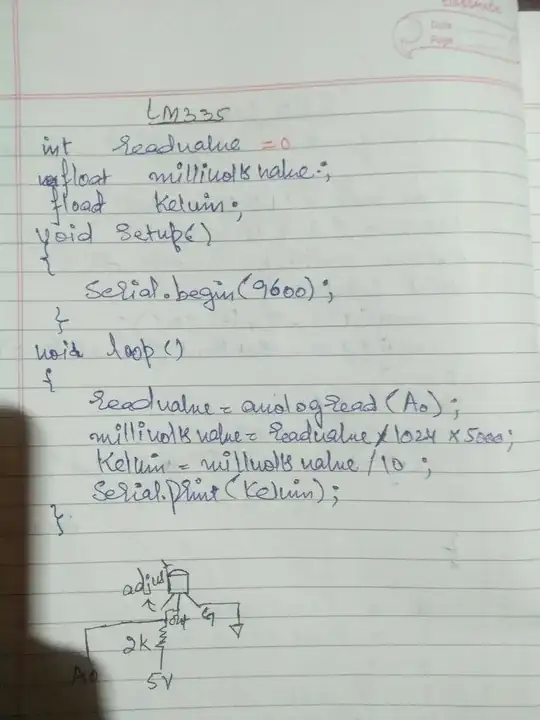 classmate
Date
Page
LM335
int readvalue = 0
float millivolts value;
float Kelvin;
void Setup()
{
Serial.begin(9600);
}
void loop()
{
readvalue = analogRead(A0);
millivolts value = readvalue / 1024 x 5000;
Kelvin = millivolts value / 10 ;
Serial.print(Kelvin);
}
adjust
out
G
2K
A0
5V